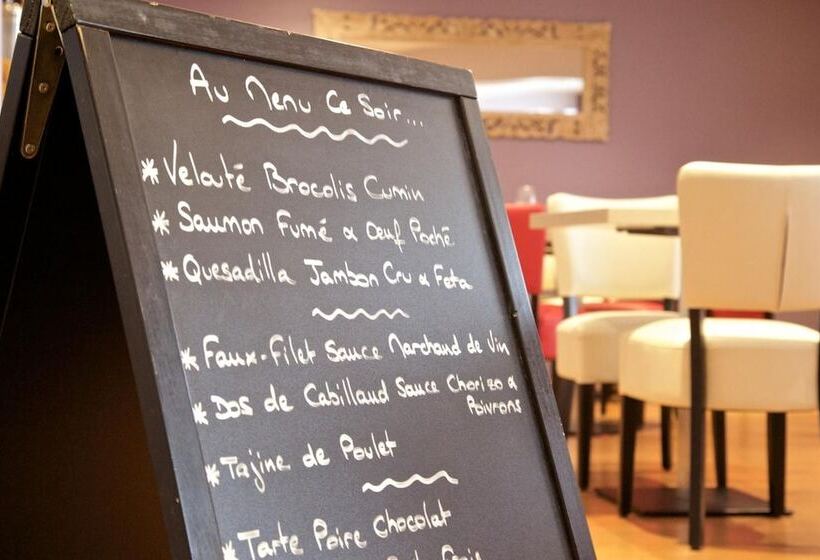 Au Menu Ce Soir...
* Velouté Brocolis Cumin
* Saumon Fumé & Œuf Poché
* Quesadilla Jambon Cru & Feta
* Faux-Filet Sauce Marchand de Vin
* Dos de Cabillaud Sauce Chorizo &
Poivrons
* Tajine de Poulet
* Tarte Poire Chocolat